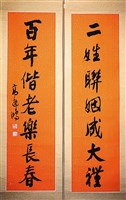 二姓聯姻成大禮
百年偕老樂長春